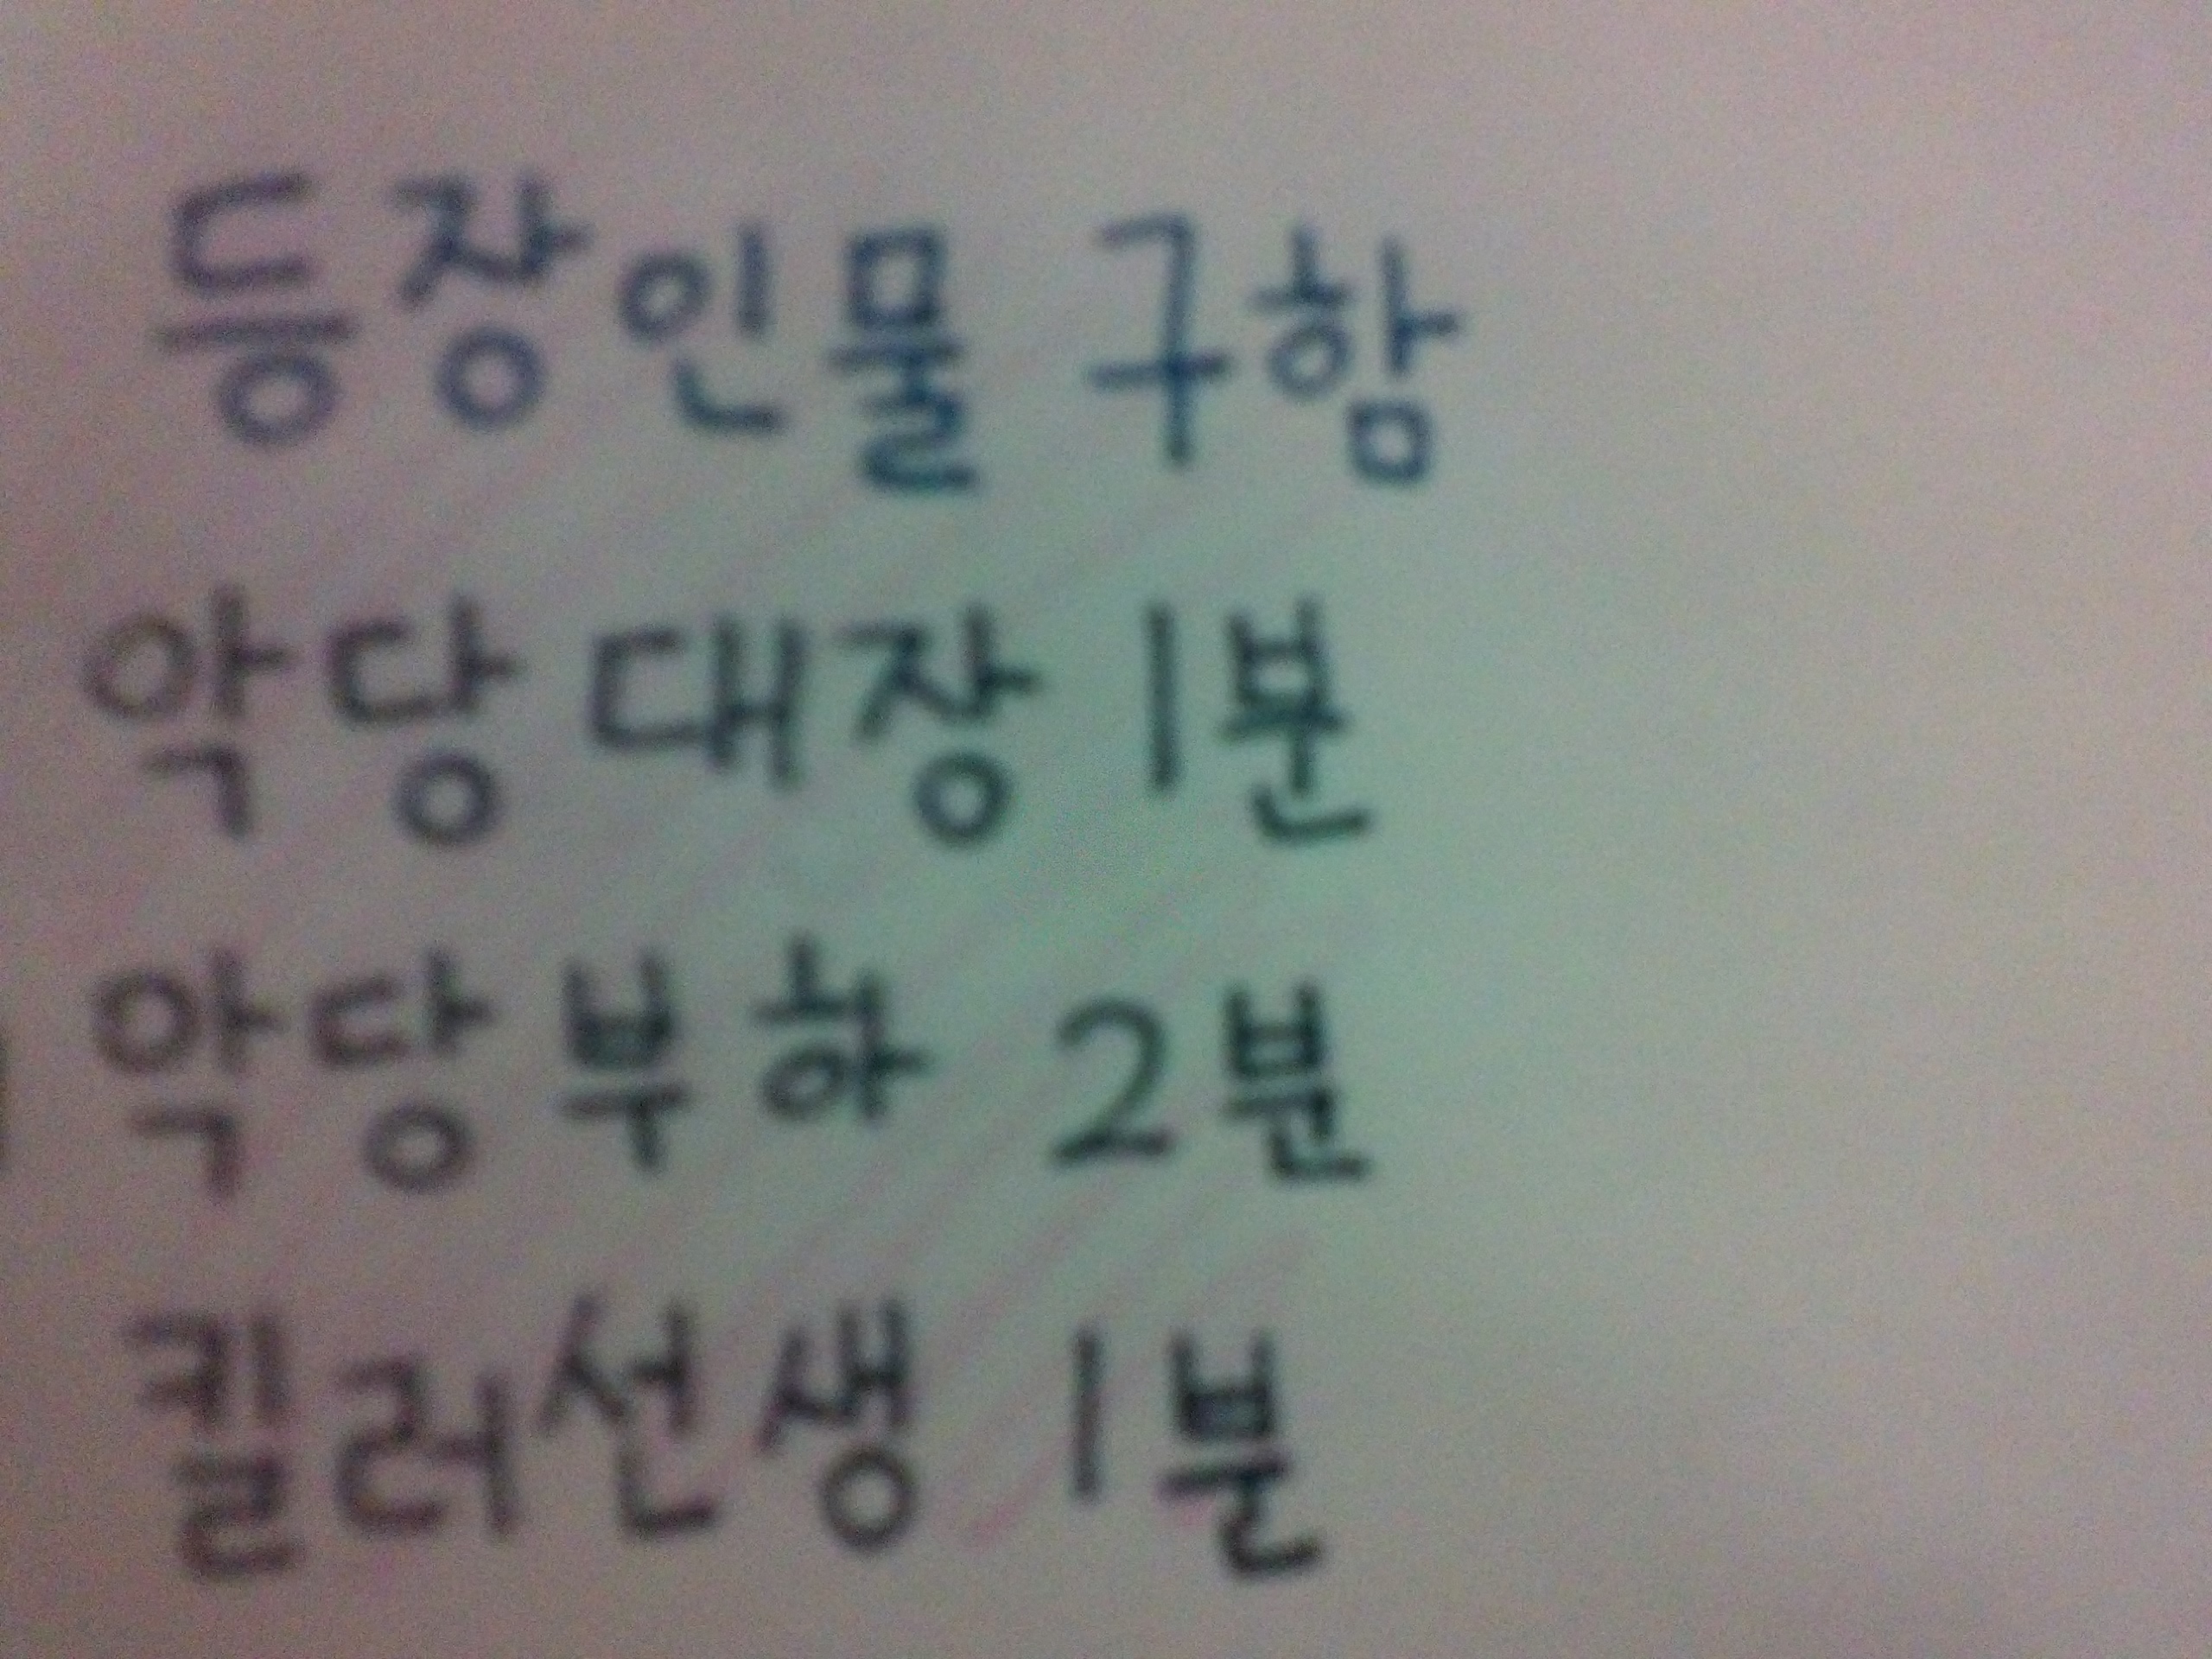 등장인물 구함
악당대장 1분
악당부하 2분
킬러선생 1분